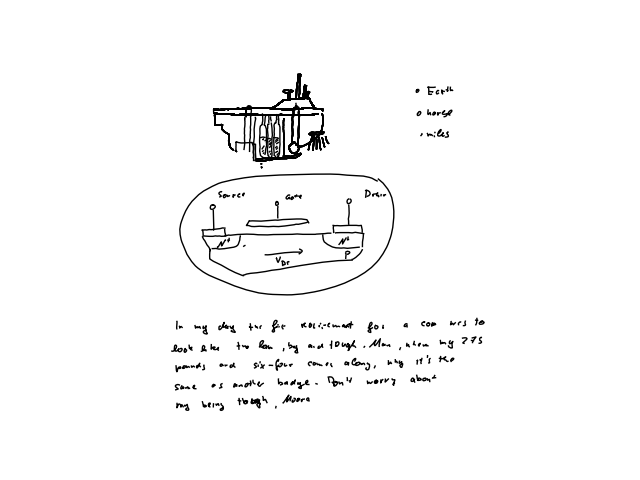 Earth
horse
miles
Source
Gate
Drain
N+
N+
P
In my day the for a cop was to
look like the law, big and tough. Man, when my 275
pounds and six-four comes along, why it's the
same as another badge. Don't worry about
my being tough, Moore